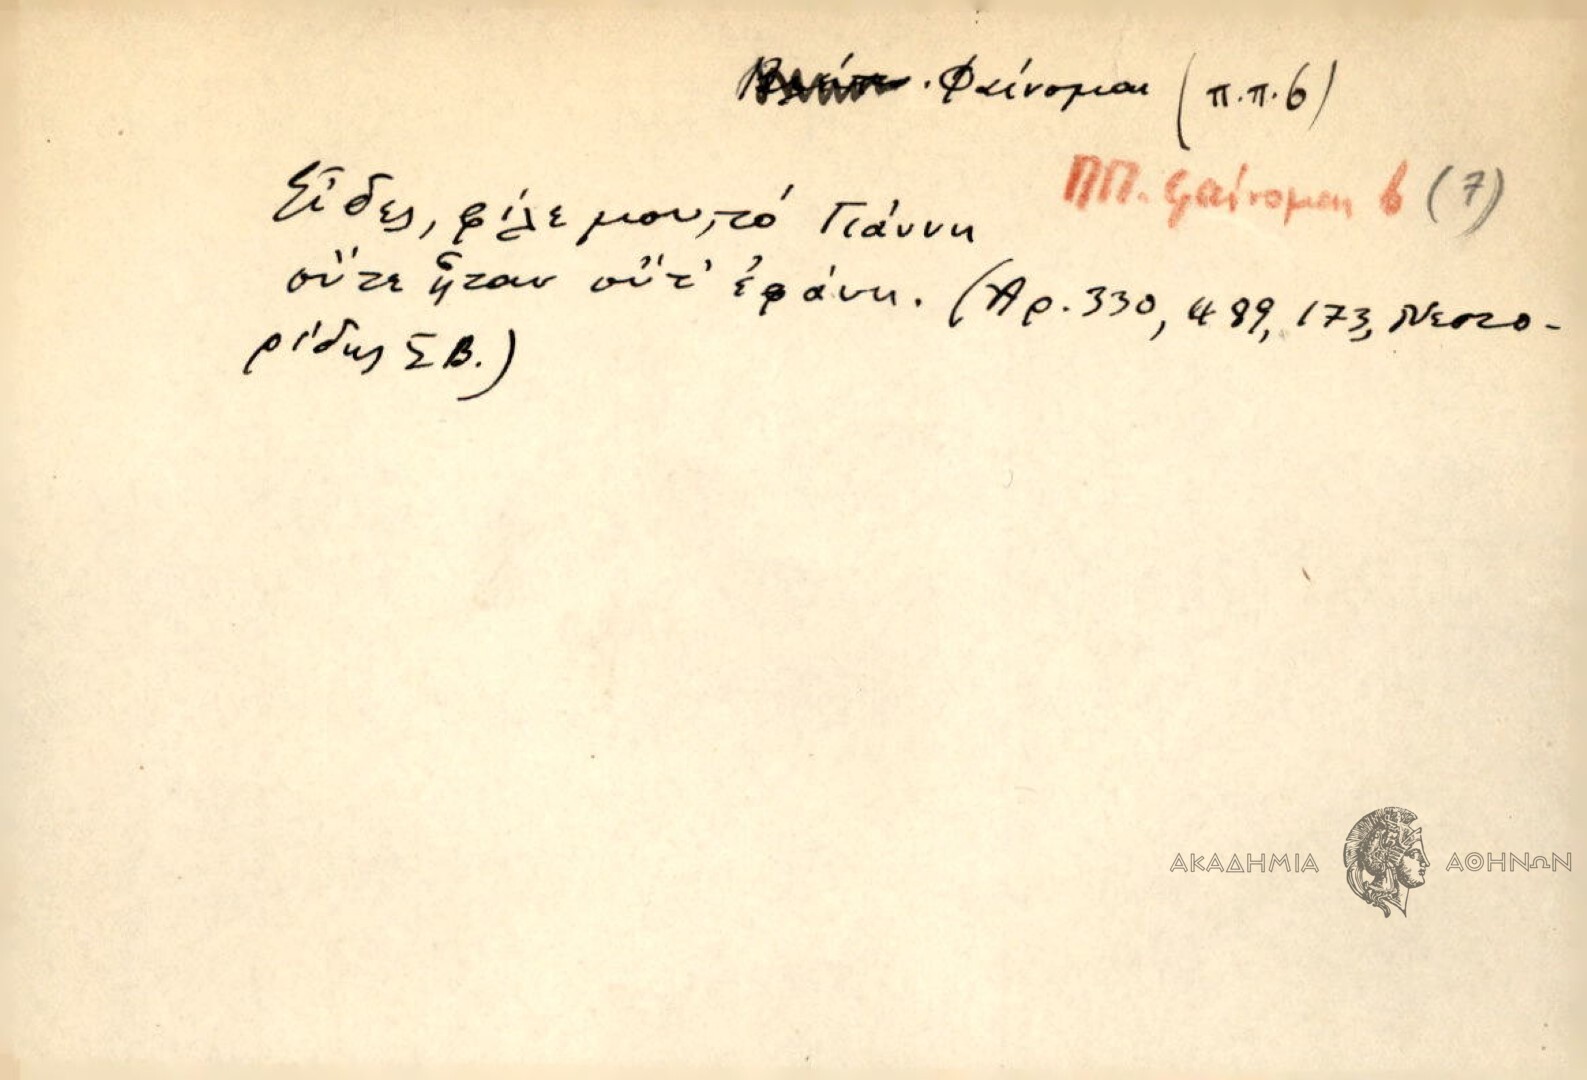 Φαίνομαι (π.π.6)
ΠΠ. φαίνομαι 6 (7)
Εἶδες, φίλε μου, τό Γιάννη
οὔτε ἦταν οὔτ' ἐφάνη. (Αρ. 330, 489, 173, Νεστο-
ρίδης ΣΒ.)
ΑΚΑΔΗΜΙΑ ΑΘΗΝΩΝ